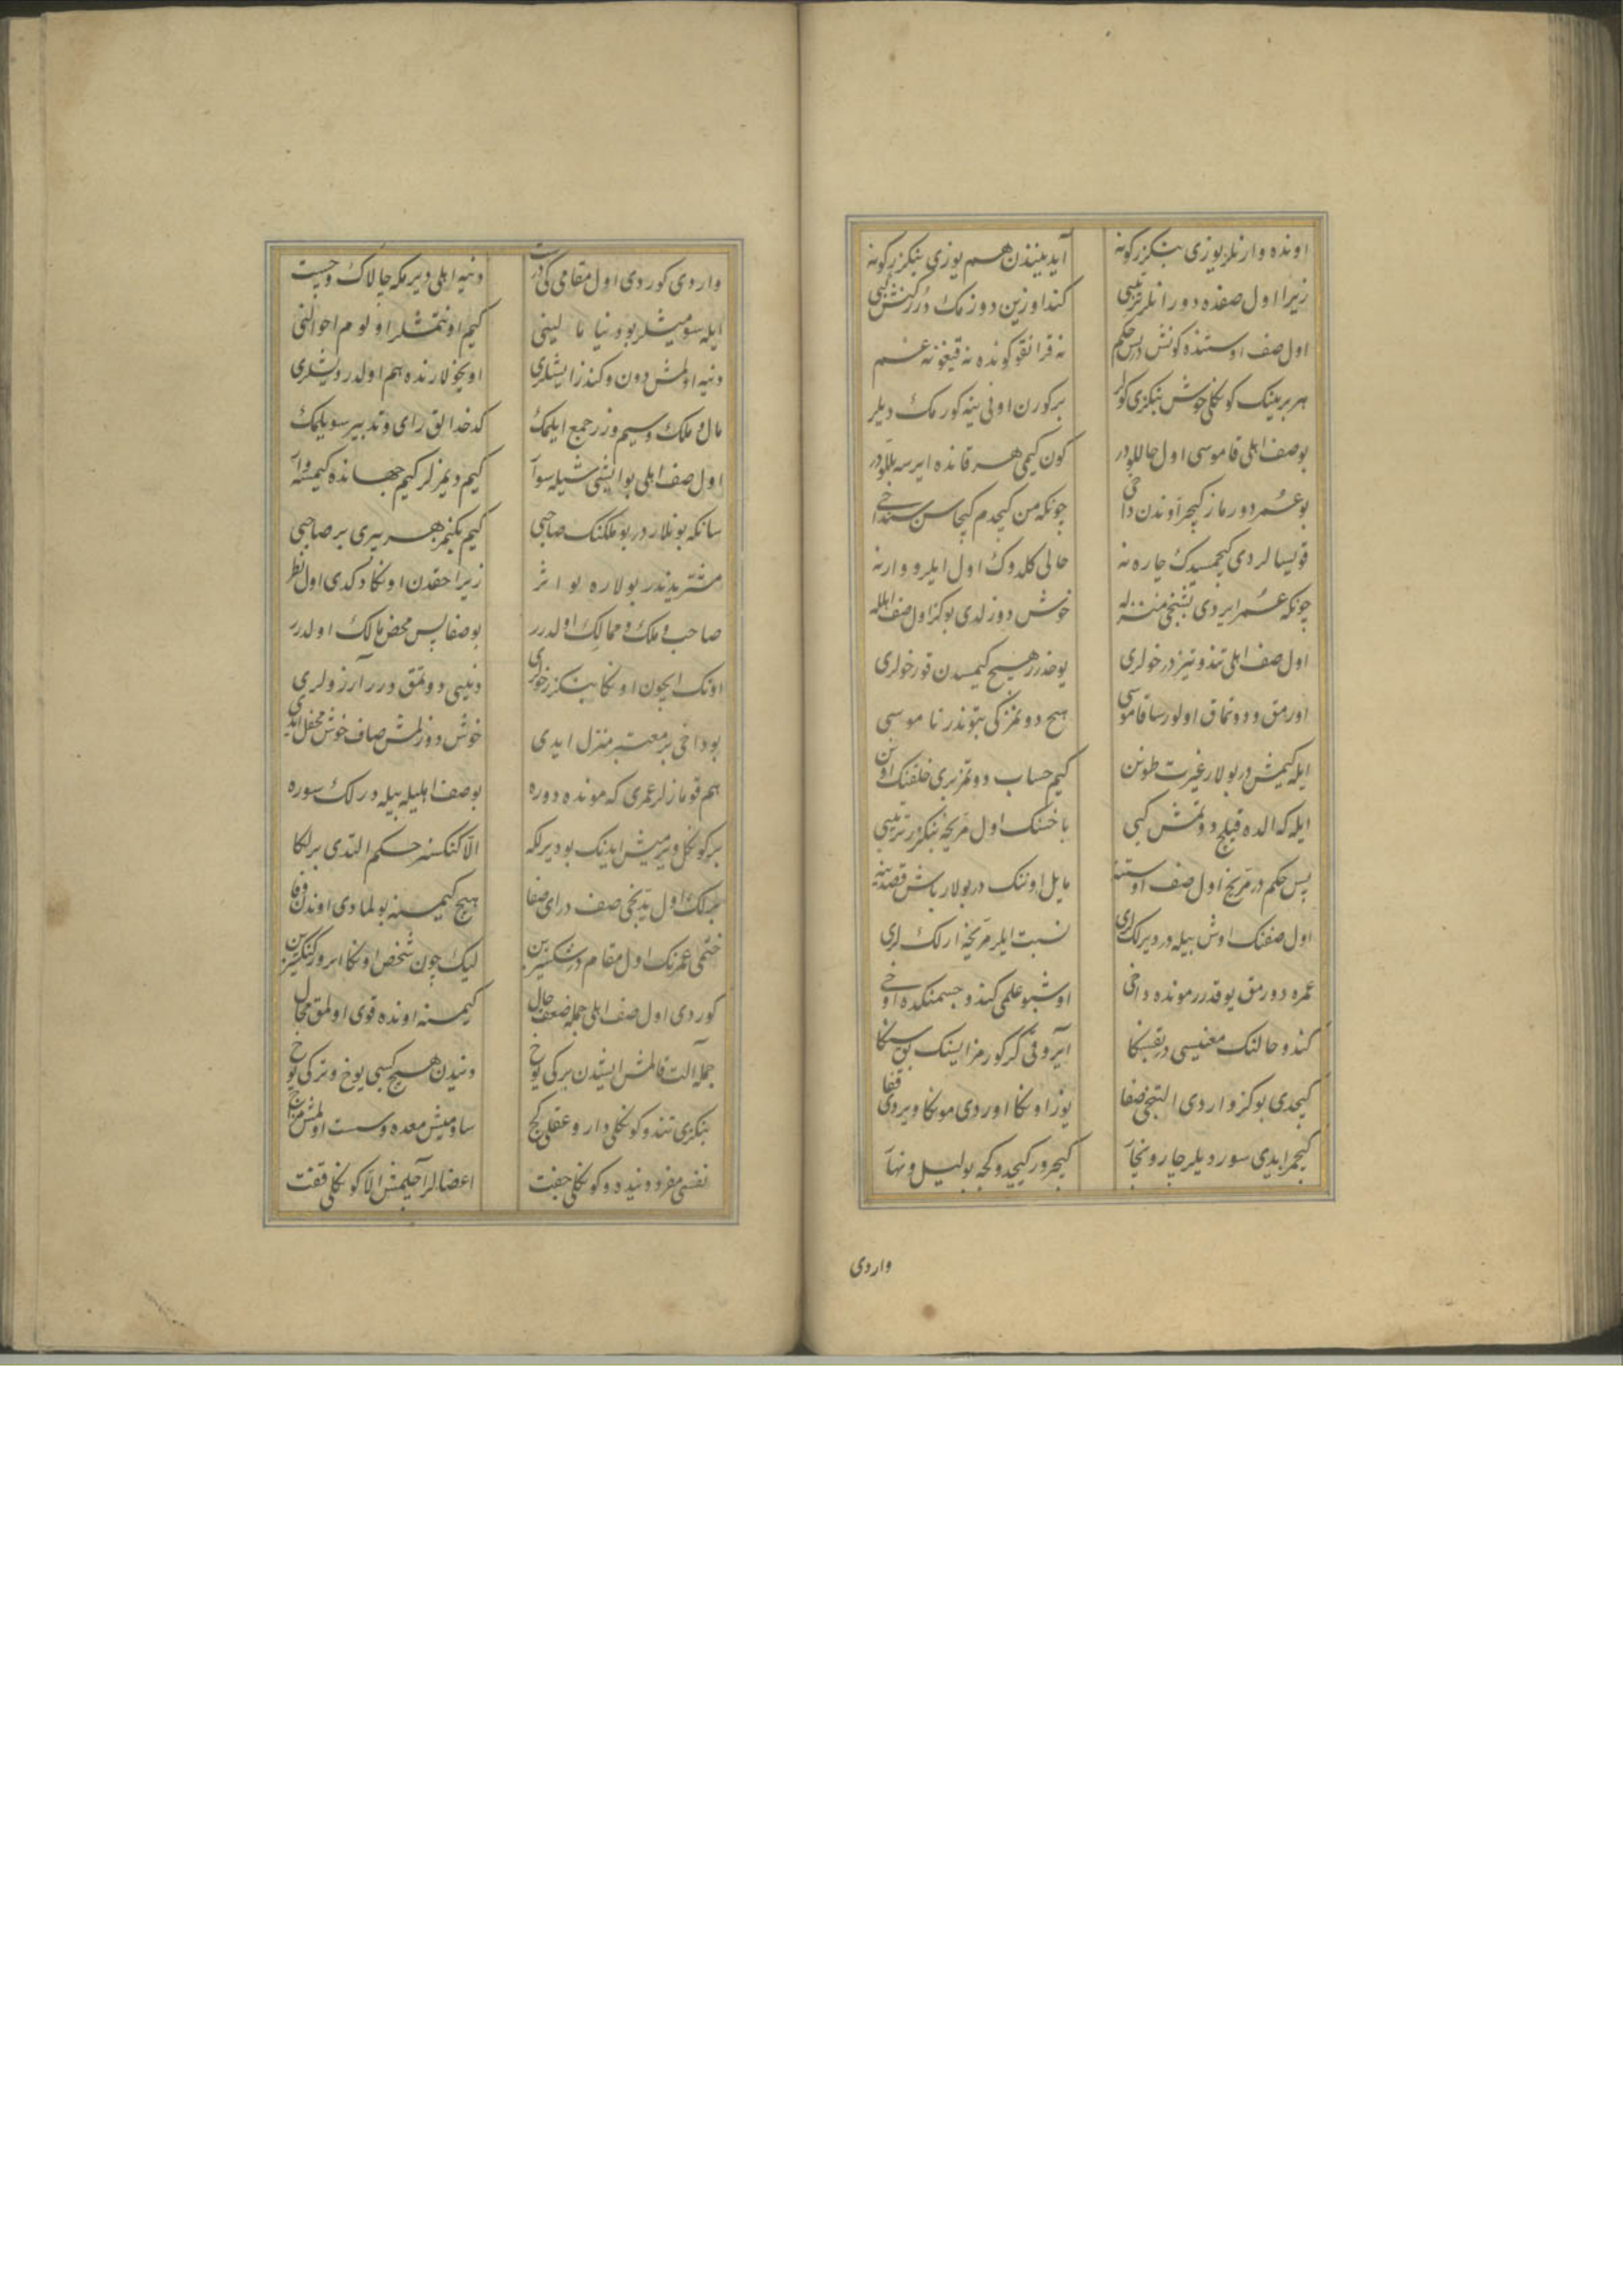 اونده وارنلر یوزی بنکزر کونه آیدینندن هم یوزی بنکزر کونه
زیرا اول صفده دورانلر ترتیبی کنداوزین دوزمک درر کنش کبی
اول صف اوستنده کونش در پس حکم نه قرانقو کونده نه قیغو نه غم
هر برینک کونکلی خوش بنکزی کولر بر کورن اونی ینه کورمک دیلر
بو صف اهلی قاموسی اول حاللودر کون کیمی هر قانده ایرسه بللودر
بو عمر دورماز کیجر اوندن داخی چونکه من کیجدم کیجاسن سن داخی
قویسالردی کیجمسیدک چاره نه حالی کلدوک اول ایلرو وارنه
چونکه عمر ایردی بشنجی منزله خوش دوزلدی بو کز اول صف اهلله
اول صف اهلی تند و تیزدر خولری یوخدر هیچ کیمسدن قورخولری
اورمق و دوتماق اولورسا قاموسی هیچ دوتمز کی بتوندر ناموسی
ایله کیمش در بولار غیرت طونن کیم حساب دوتمز بری خلقنک اونن
ایله که الده قیلج دوتمش کبی باخسنک اول مریخه بنکزر ترتیبی
پس حکم در مریخ اول صف اوستنه مایل اوننک در بولار باش قصدینه
اول صفنک اوش بیله در دیرلکلری نسبت ایلر مریخه ارلکلری
عمره دورمق یوقدرر مونده داخی اوشبو علمی کندو جسمنکده اوخی
کندو حالنک معنیسی در بقسنکا آیروقی کر کورمز ایسنک بق سنکا
کیجدی بو کز واردی التنجی صفا یوز اونکا اوردی مونکا ویردی قفا
کیجر ایدی سوردیلر چار و نجار کیجرور کیجیدوکجه بو لیل و نهار
واردی
واردی کوردی اول مقامی کی درست دنیه اهلی دیرمکه چالاک و چست
ایله سومیشلر بو دنیا مالینی کیم اونتمشلر اولوم احوالنی
دنیه اولمش دون و کندز ایشلری اویخولارنده هم اولدر دوشلری
مال و ملک و سیم و زر جمع ایلمک کدخدالق رای و تدبیر سویلمک
اول صف اهلی بو ایشی شیله سوار کیم دیمزلر کیم جهانده کیمسه وار
سانکه بونلاردر بو ملکنک صاحبی کیم بکنمز هر بیری بر صاحبی
مشتریدندر بولاره بو اثر زیرا حقدن اونکا دکدی اول نظر
صاحب ملک و ممالک اولدرر بو صفا پس محض مالک اولدرر
اونک ایچون اونکا بنکزر خولری دنیی دوتمق درر آرزولری
بو داخی بر معتبر منزل ایدی خوش دوزلمش صاف خوش محفل ایدی
هم قومازلر عمری که مونده دوره بو صف اهلیله بیله درلک سوره
بر کونکل ویرمیش ایدنک بو دیرلکه الا کنکسنز حکم التدی برلکا
اول یدنجی صف در ای صفا هیچ کیمسنه بولمادی اوندن وفا
ختمی عمرنک اول مقام در شکسیزین لیک چون شخص اونکا ایرور کنکسیزین
کوردی اول صف اهلی جمله ضعف حال کیمسنه اونده قوی اولمق محال
جمله آلت قالمش ایشدن برکی یوخ دنیدن هیچ کسبی یوخ و ترکی یوخ
بنکزی تند و کونکلی دار و عقلی کج ساومیش معده و سست اولمش مزاج
نفسی مفرد دنیده و کونکلی جفت اعضالر آجلمش الا کونکلی قفت